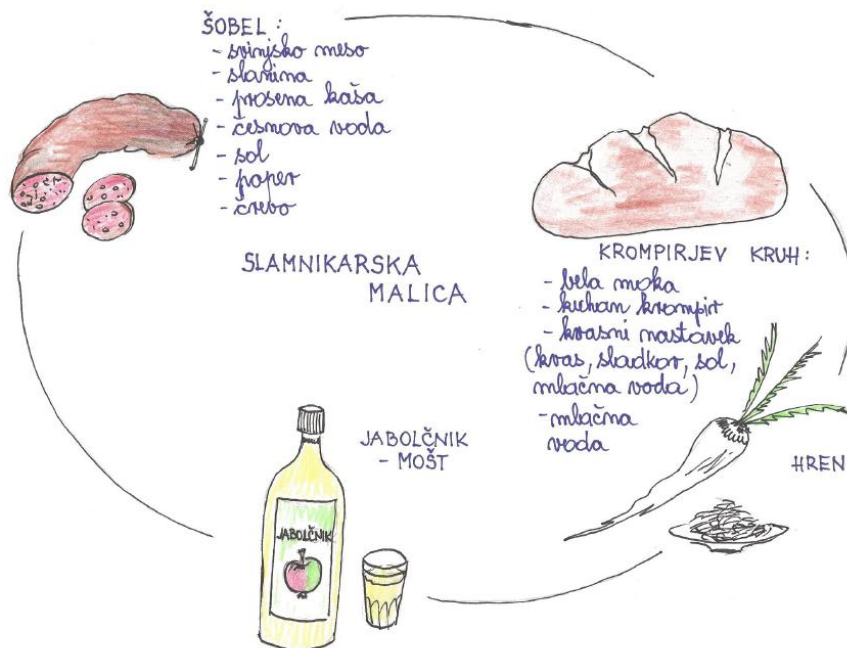 ŠOBEL :
- svinjsko meso
- slanina
- prosena kaša
- česnova voda
- sol
- poper
- črevo
SLAMNIKARSKA
MALICA
KROMPIRJEV KRUH :
- bela moka
- kuhan krompir
- kvasni nastavek
(kvas, sladkor, sol,
mlačna voda)
- mlačna
voda
HREN
JABOLČNIK
- MOŠT
JABOLČNIK